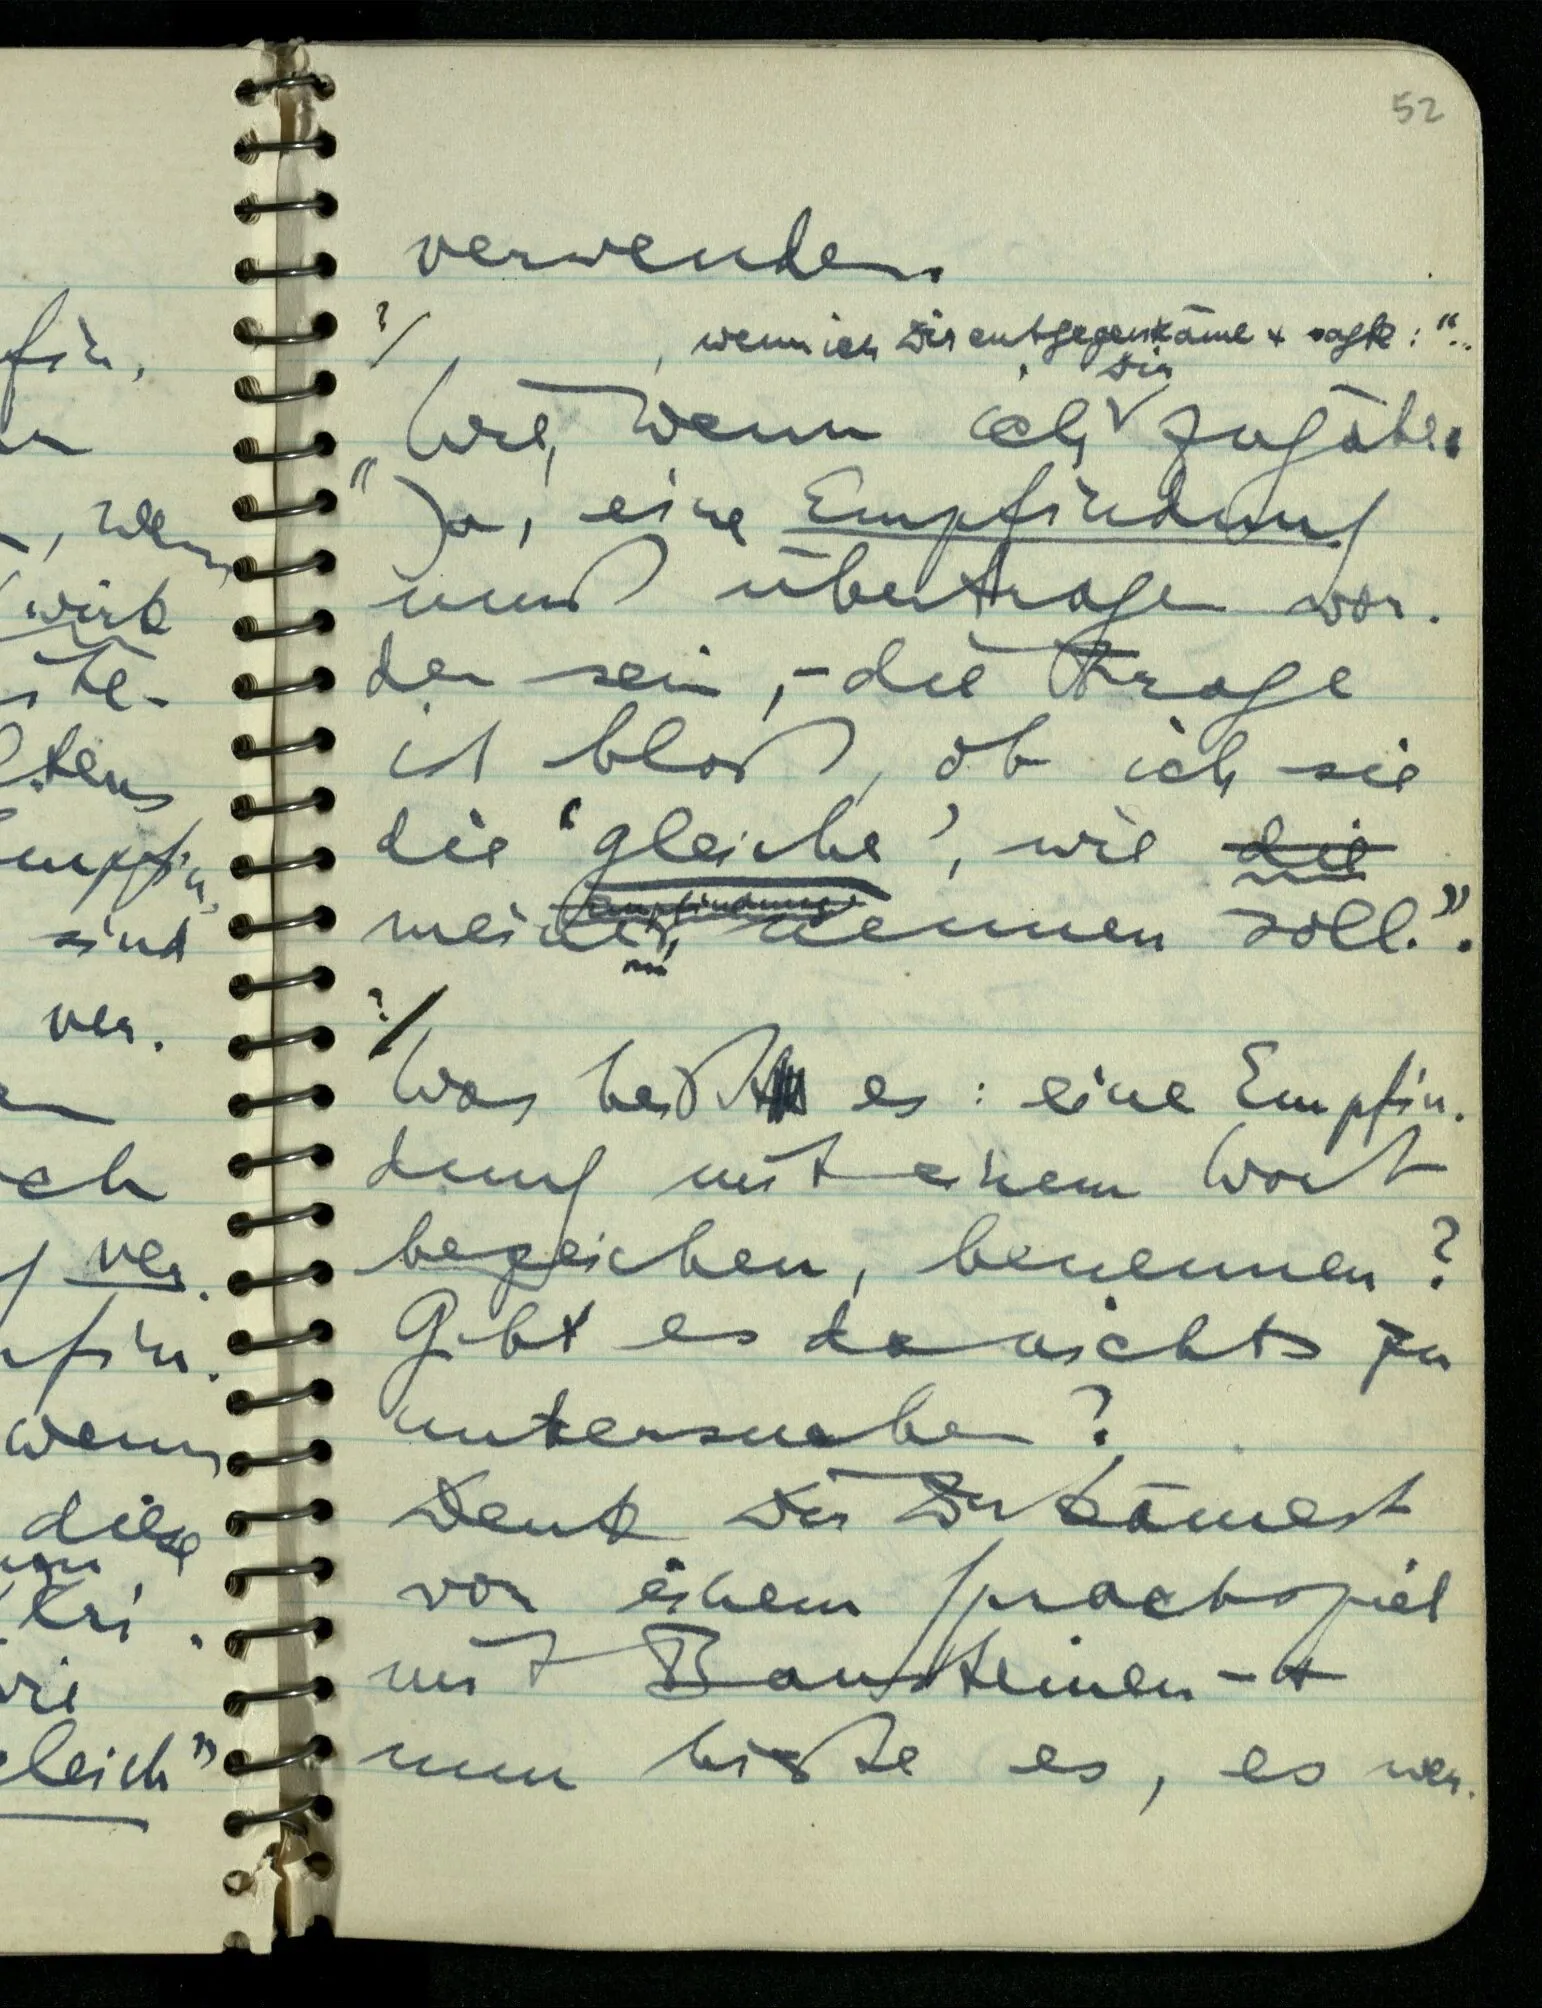 52
fin,
, wen
wirk
ste-
ltens
Empfin
sind
ver.
ch
ver.
pfin.
wenn
diese
Kri.
wie
gleich"
verwenden.
?/ , wenn ich Dir entgegenkäme + sagte: "..
Dir
Wie, wenn ich zugäbe:
"Ja, eine Empfindung
muß übertragen wor-
den sein, – die Frage
ist bloß, ob ich sie
die 'gleiche', wie die
Empfindung
meine, nennen soll.".
?/
Was heißt es: eine Empfin-
dung mit einem Wort
bezeichen, benennen?
Gibt es da nichts zu
untersuchen?
Denk Dir Du kämest
von einem Sprachspiel
mit Bausteinen – +
nun hieße es, es wer-